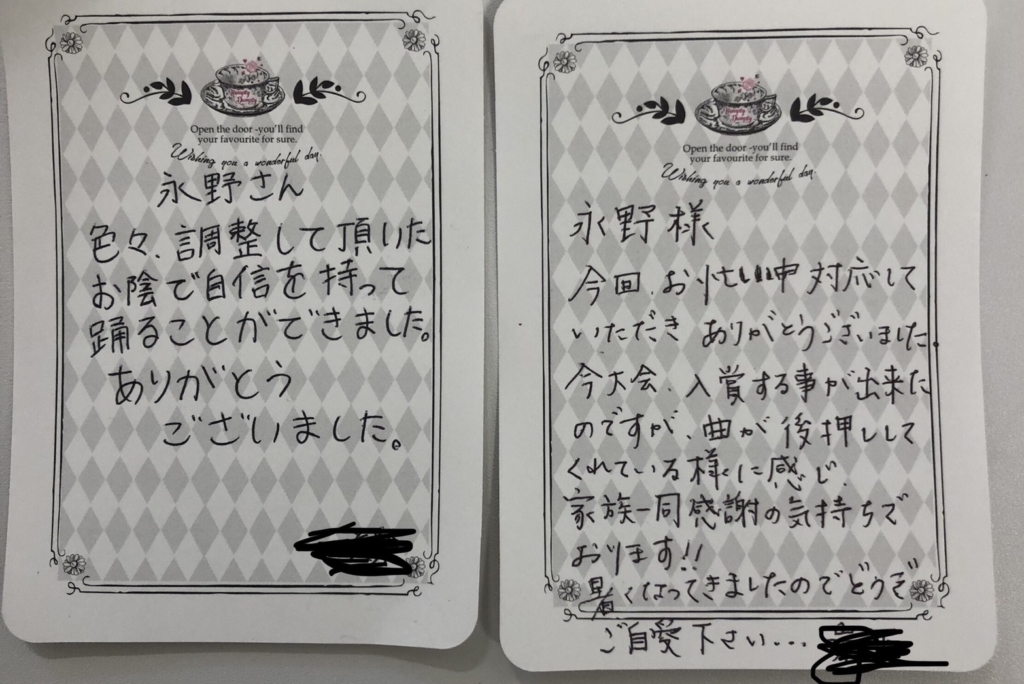 Humpty Dumpty
Open the door -you'll find
your favourite for sure.
Wishing you a wonderful day.
永野さん
色々、調整して頂いた
お陰で自信を持って
踊ることができました。
ありがとう
ございました。
Humpty Dumpty
Open the door -you'll find
your favourite for sure.
Wishing you a wonderful day.
永野様
今回、お忙しい中 対応して
いただき ありがとうございました。
今大会、入賞する事が出来た
のですが、曲が後押しして
くれている様に感じ、
家族一同感謝の気持ちで
おります!!
暑くなってきましたのでどうぞ
ご自愛下さい...